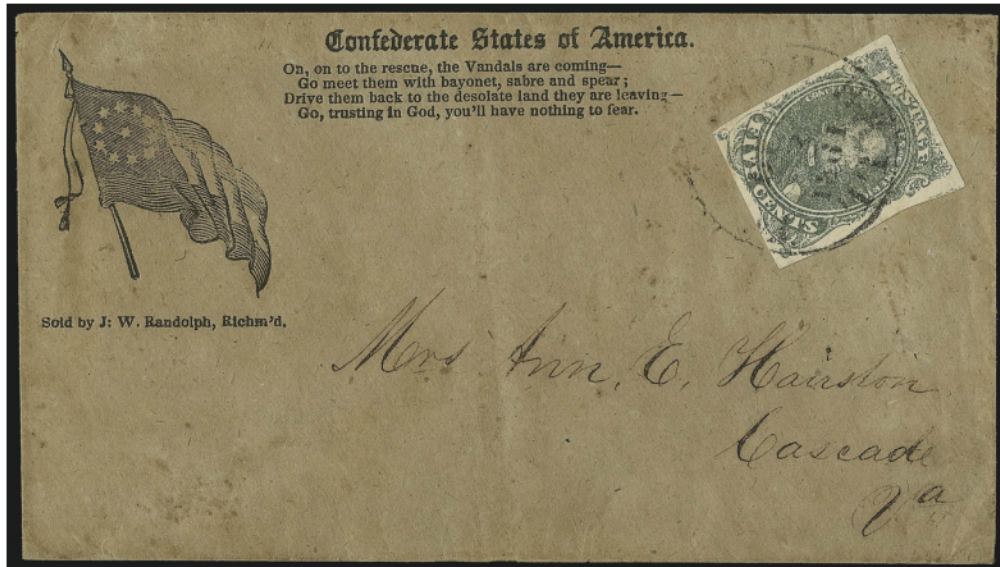 Confederate States of America.
On, on to the rescue, the Vandals are coming—
Go meet them with bayonet, sabre and spear;
Drive them back to the desolate land they are leaving—
Go, trusting in God, you'll have nothing to fear.
POSTAGE
CENTS
1861
Sold by J: W. Randolph, Richm'd.
Mrs Ann. E. Hairston
Cascade
Va